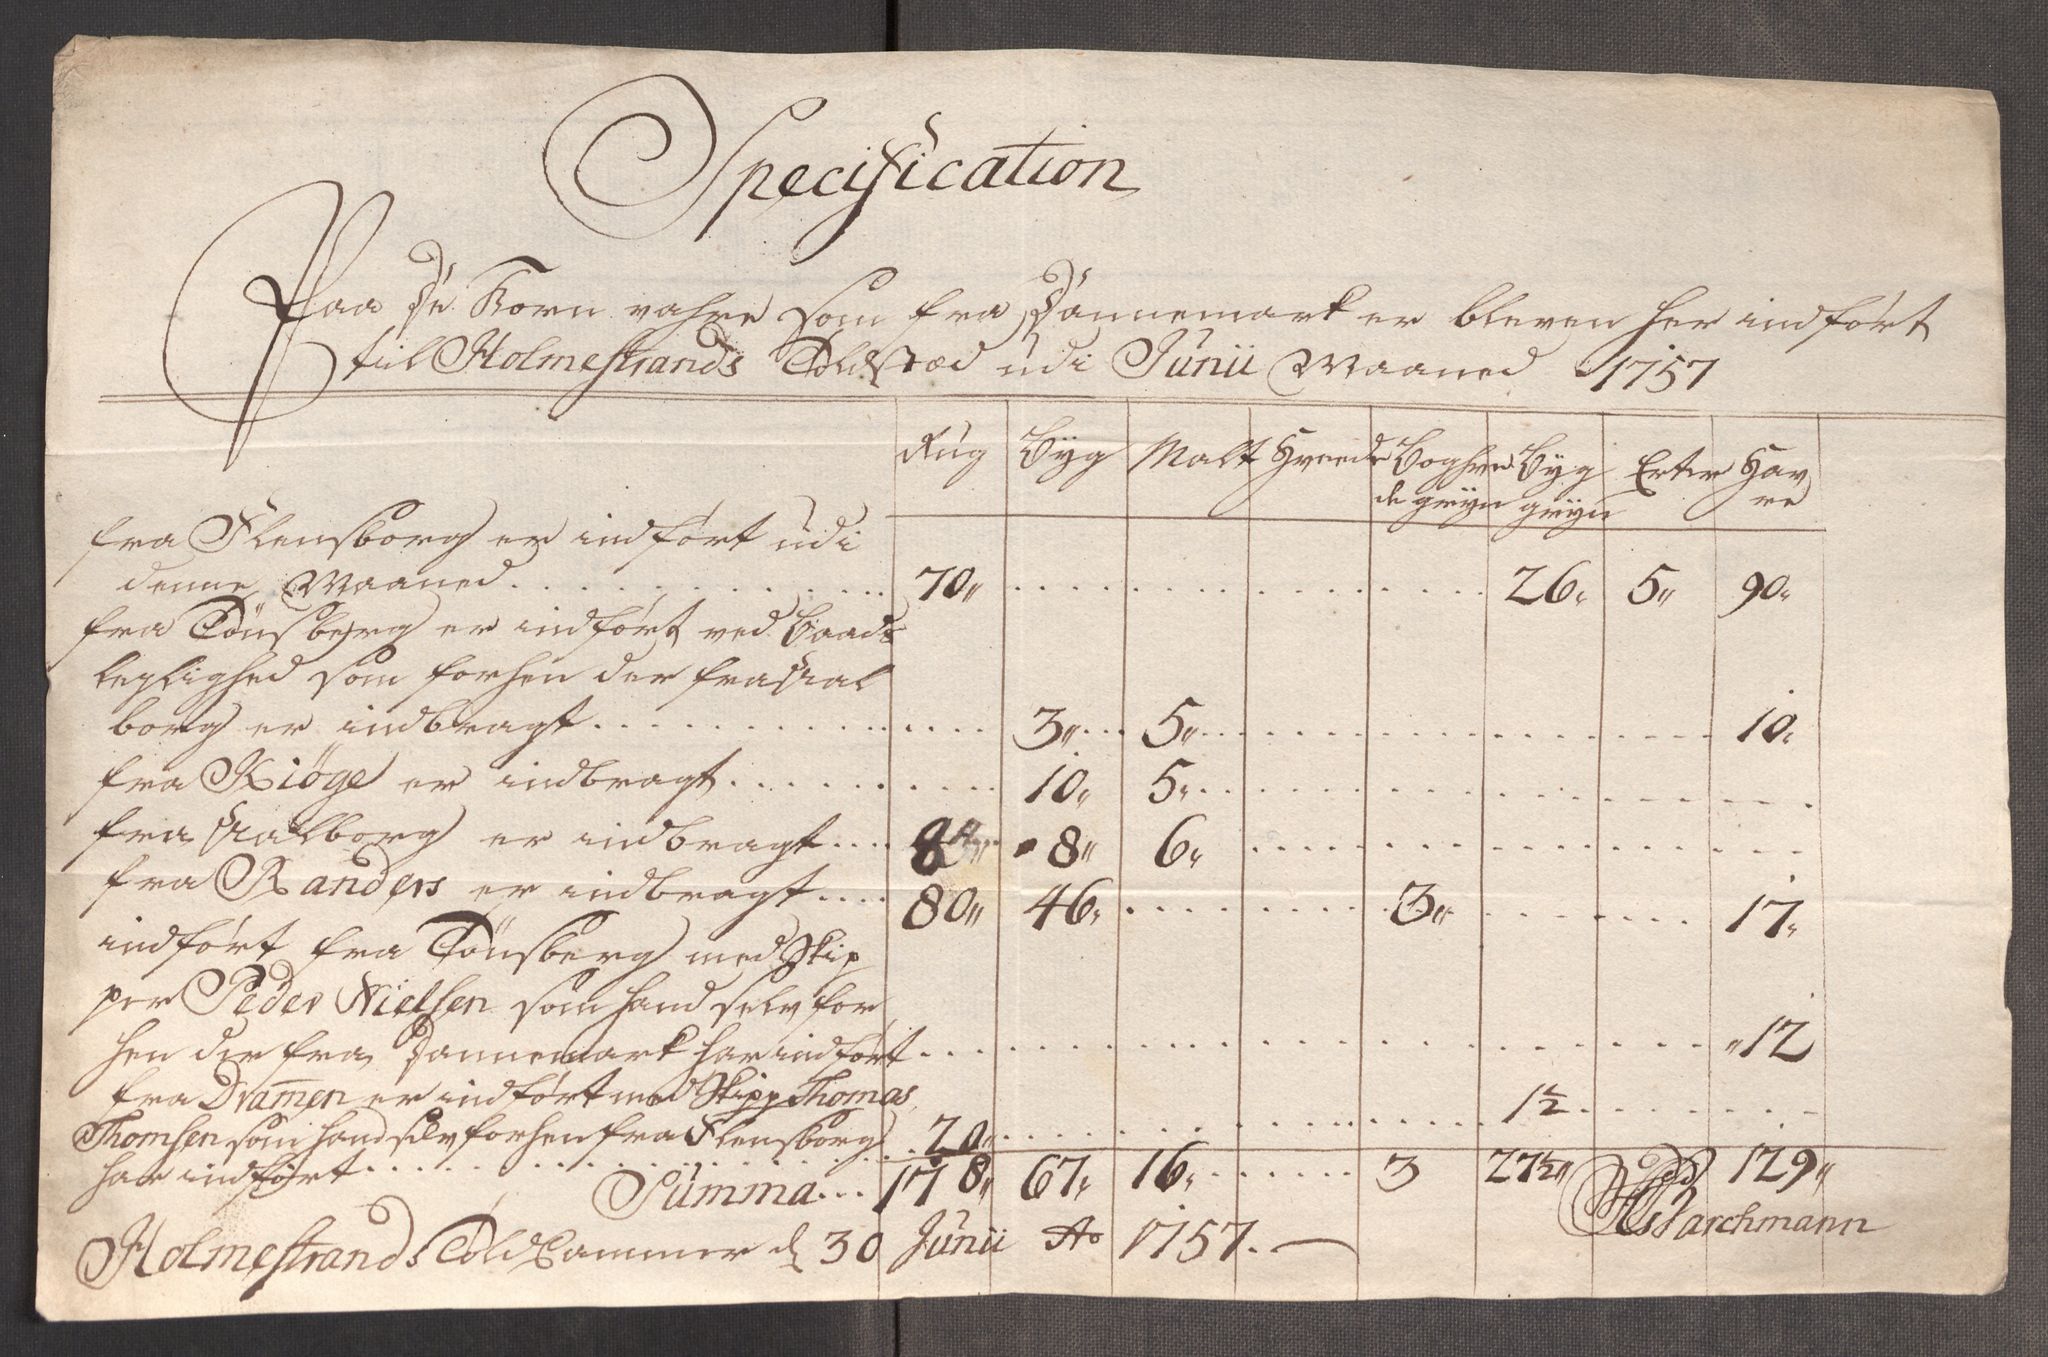 Specification
Paa De Korn vahre som fra Dannemark er bleven her indført
til Holmestrands Toldstæd udi Junii Maaned 1757
Rug Byg Malt Hveede Boghve Byg Erter Hav
de gryn gryn re
fra Flensborg er indført udi
denne Maaned 70 26 5 90
fra Tönsberg er indført ved Baads
leylighed som forhen der fra Aal
borg er indbragt 3 5 10
fra Kiöge er indbragt 10 5
fra Aalborg er indbragt 8 8 6
fra Randers er indbragt 80 46 3 17
indført fra Tönsberg med Skip
per Peder Nielsen som hand selv for
hen der fra Dannemark har indført 12
fra Dramen er indført med Skipp Thomas 1½
Thomsen som hand selv forhen fra Flensborg
har indført 20
Summa 178 67 16 3 27½ 129
Holmestrands Told Cammer d 30 Junii Ao 1757.
Barchmann